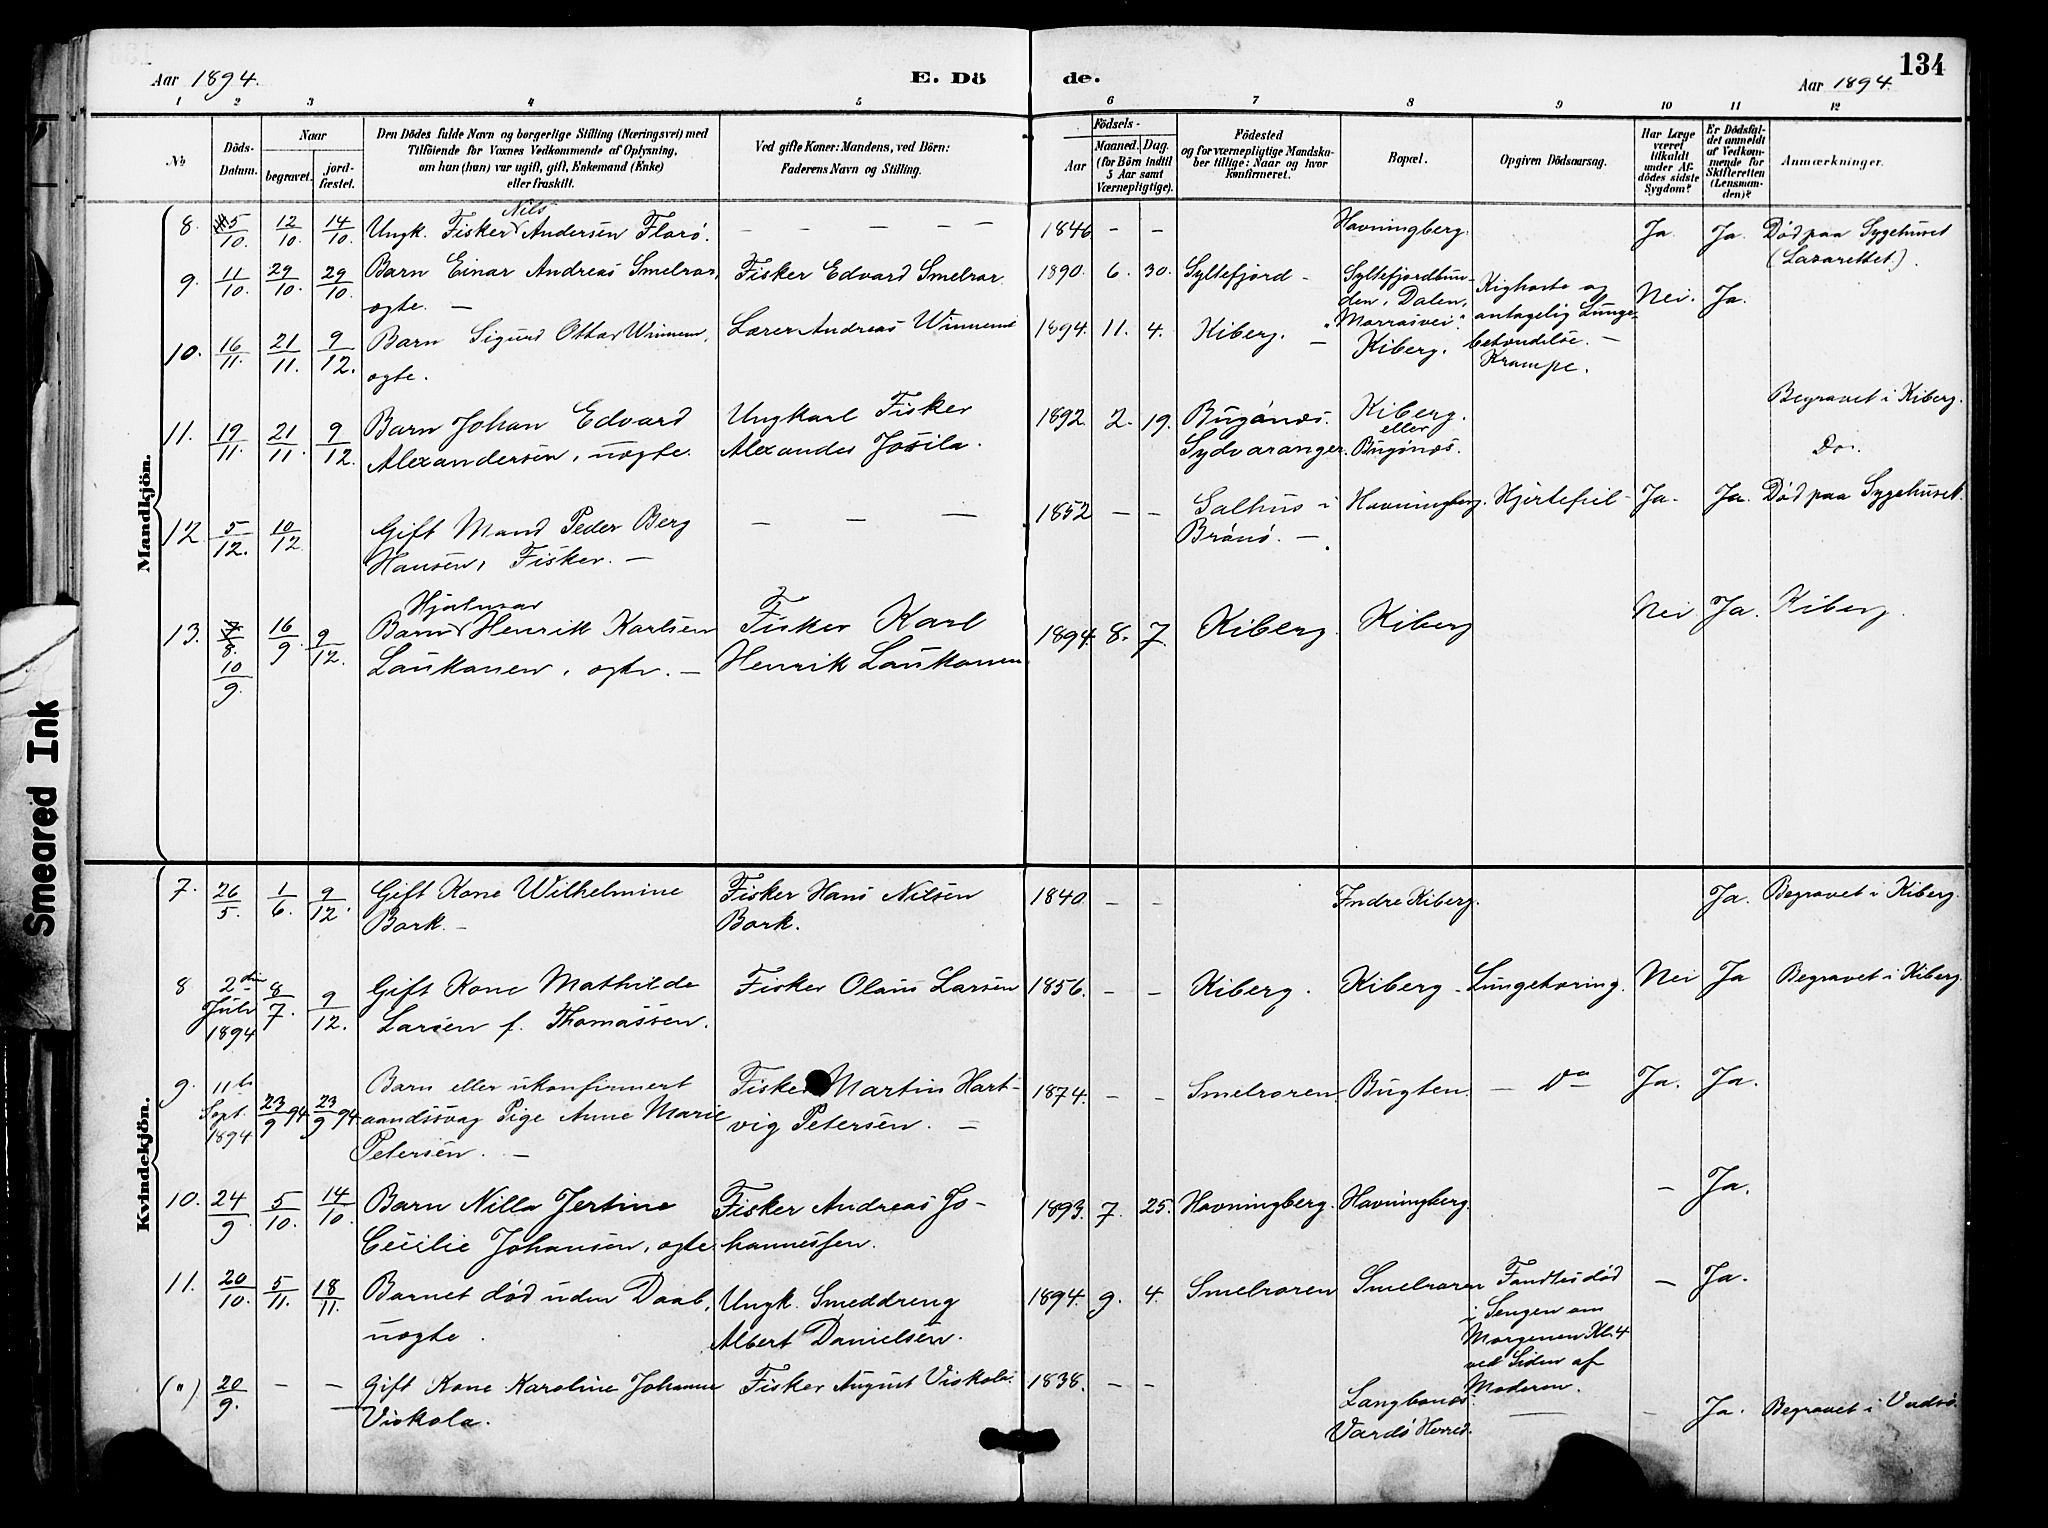 134
Aar 1894.
E. Dö
de.
Aar 1894.
1 2 3 4 5 6 7 8 9 10 11 12
No
Döds-
Datum.
Naar
begravet.
jord-
fæstet.
Den Dödes fulde Navn og borgerlige Stilling (Næringsvei) med
Tilföiende for Voxnes Vedkommende af Oplysning,
om han (hun) var ugift, gift, Enkemand (Enke)
eller fraskilt.
Ved gifte Koner: Mandens, ved Börn:
Faderens Navn og Stilling.
Födsels-
Aar
Maaned. Dag.
(for Börn indtil
5 Aar samt
Værnepligtige).
Födested
og for værnepligtige Mandska-
ber tillige: Naar og hvor
konfirmeret.
Bopæl.
Opgiven Dödsaarsag.
Har Læge
været
tilkaldt
under Af-
dödes sidste
Sygdom?
Er Dödsfal-
det anmeldt
af Vedkom-
mende for
Skifteretten
(Lensman-
den)?
Anmærkninger.
Mandkjön.
8. 5/10. 12/10. 14/10. Ungk. Fisker Nils Andersen Florö. – – – – – 1846 – – Havningberg. Ja. Ja. Död paa Sygehuset
(Lazarettet.).
9. 11/10. 29/10. 29/10. Barn Einar Andreas Smelror, Fisker Edvard Smelror 1890. 6. 30. Syltefjord – Syltefjordbun- Kighoste og Nei. Ja.
ægte. – den, Dalen, antagelig Lunge-
"Morrasvei". betændelse. –
10. 16/11. 21/11. 9/12. Barn Sigurd Ottar Winnem, Lærer Andreas Winnem 1894. 11. 4. Kiberg. – Kiberg. Krampe.
ægte.
11. 19/11. 21/11. 9/12. Barn Johan Edvard Ungkarl Fisker 1892. 2. 19. Bugönæs. Kiberg. Begravet i Kiberg.
Alexandersen, uægte. Alexander Josila. Sydvaranger. eller Bugönæs. Do.
12 5/12. 10/12 Gift Mand Peder Berg – – – 1852 – – Salhus i Havningberg. Hjertefeil – Ja. Ja. Död paa Sygehuset.
Hansen, Fisker. – Brönö. –
13. 7/8. 10/9. 16/9. 9/12. Barn Hjalmar Henrik Karlsen Fisker Karl 1894 8. 7. Kiberg. Kiberg Nei Ja. Kiberg.
Laukanen, ægte. – Henrik Laukanen
Kvindekjön.
7. 26/5. 1/6. 9/12. Gift Kone Wilhelmine Fisker Hans Nilsen 1840. – – Indre Kiberg. Ja. Begravet i Kiberg.
Bork. – Bork.
8 2den Juli 1894 8/7. 9/12. Gift Kone Mathilde Fisker Olaus Larsen 1856. – – Kiberg. Kiberg – Lungetæring. Nei Ja Begravet i Kiberg.
Larsen f. Thomassen.
9. 11te Sept. 1894 23/9 94 23/9 94 Barn eller ukonfirmert Fisker Martin Hart- 1874. – – Smelroren. Bugten. – Do Ja. Ja.
aandssvag Pige Anne Marie vig Petersen. –
Petersen. –
10. 24/9. 5/10. 14/10. Barn Nilla Jertine Fisker Andreas Jo- 1893. 7. 25. Havningberg. Havningberg. – Ja.
Cecilie Johansen, ægte hannessen.
11. 20/10. 5/11. 18/11. Barnet död uden Daab, Ungk. Smeddreng 1894. 9. 4. Smelroren Smelroren Fandtes död – Ja.
uægte. Albert Danielsen. i Sengen om
Morgenen Kl. 4
ved Siden af
Moderen.
(") 20/9. – – Gift Kone Karoline Johanne Fisker August Viskola. 1838. – – Langbunæs. – – Ja. Begravet i Vadsö.
Viskola. Vardö Herred.
Smeared Ink